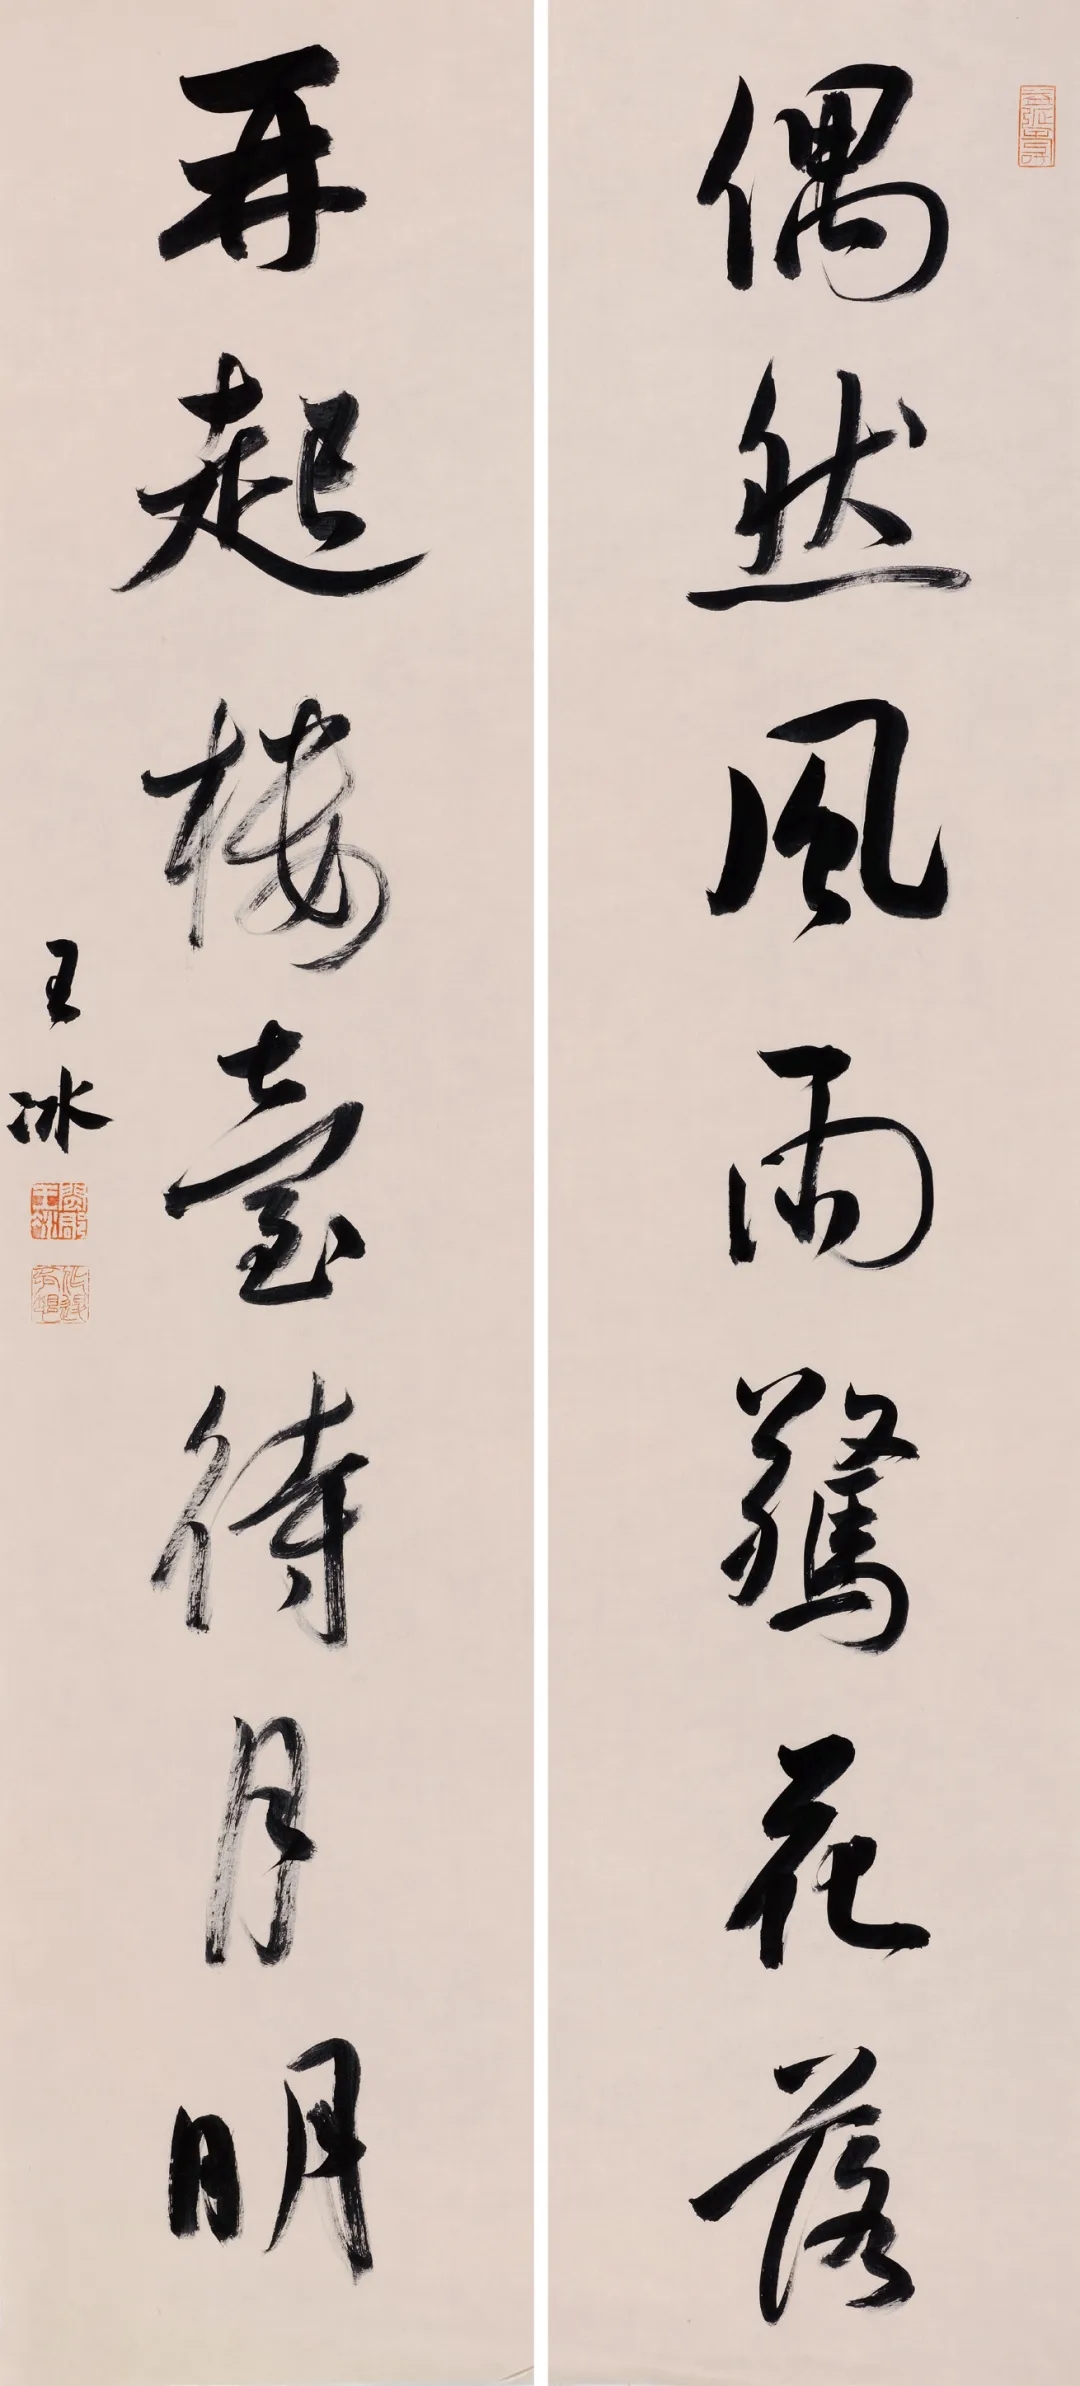 偶然風雨驚花落
再起樓臺待月明
王冰